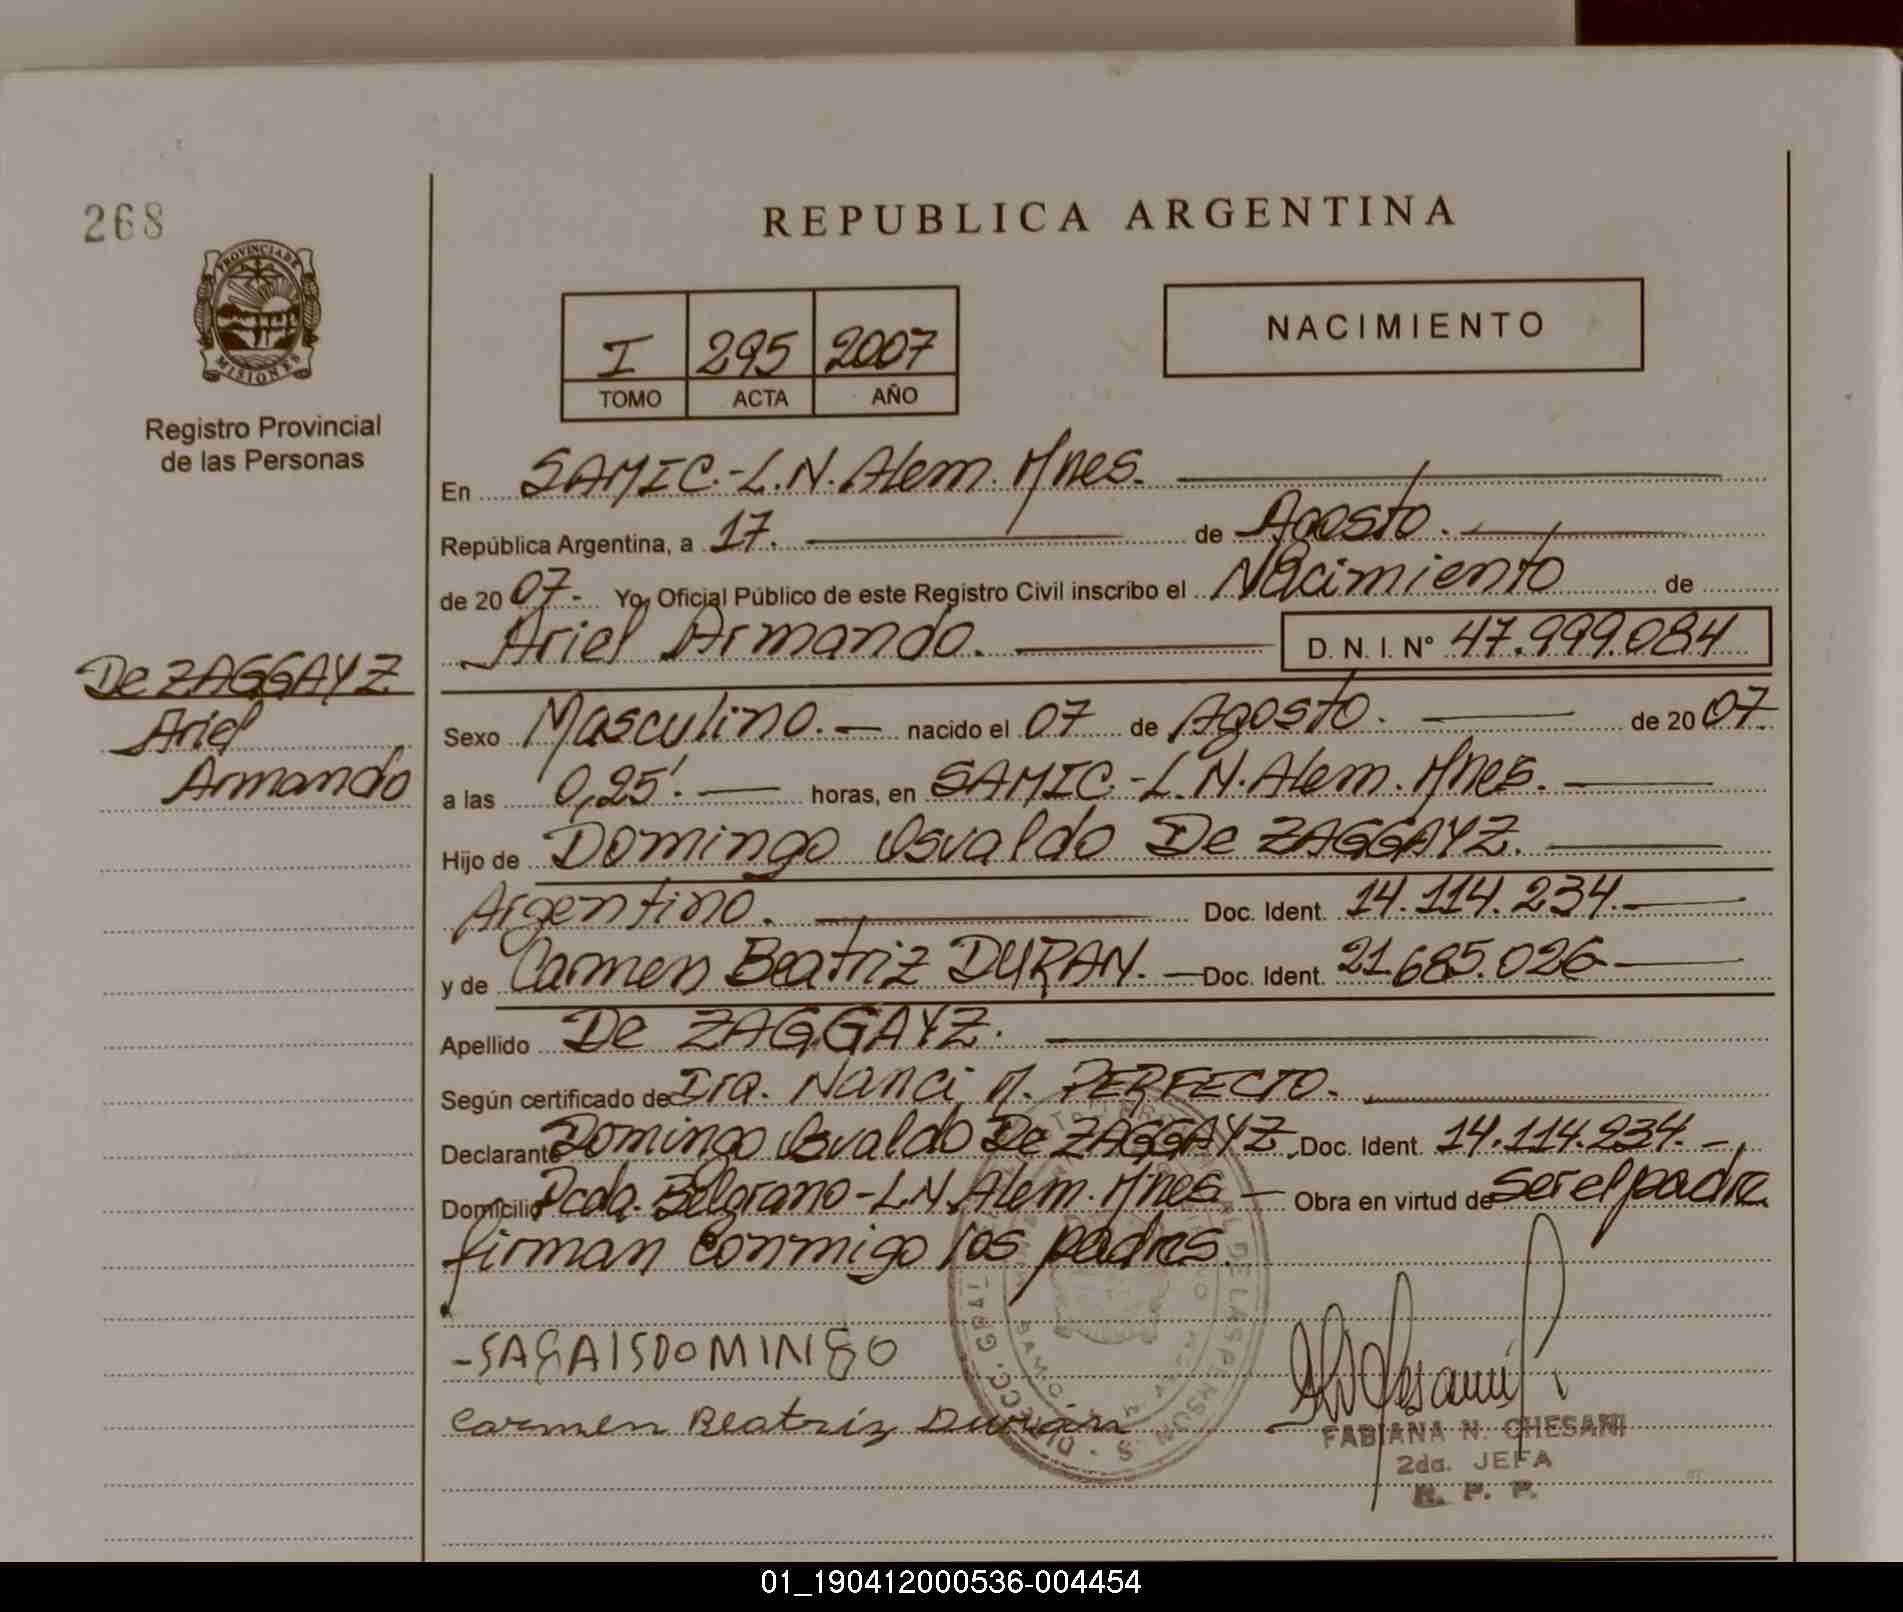 268
REPUBLICA ARGENTINA
PROVINCIA DE
MISIONES
Registro Provincial
de las Personas
I 295 2007
TOMO ACTA AÑO
NACIMIENTO
En SAMIC.-L.N.Alem.Mnes.
República Argentina, a 17. de Agosto.
de 2007.- Yo, Oficial Público de este Registro Civil inscribo el Nacimiento de
Ariel Armando. D. N. I. Nº 47.999.084
De ZAGGAYZ
Ariel
Armando
Sexo Masculino. nacido el 07 de Agosto. de 2007.
a las 0,25'. horas, en SAMIC.-L.N.Alem.Mnes.
Hijo de Domingo Osvaldo De ZAGGAYZ.
Argentino. Doc. Ident. 14.114.234.
y de Carmen Beatriz DURAN. Doc. Ident. 21.685.026
Apellido De ZAGGAYZ.
Según certificado de Dra. Nanci M. PERFECTO.
Declarante Domingo Osvaldo De ZAGGAYZ. Doc. Ident. 14.114.234.-
Domicilio Pcda. Belgrano-L.N.Alem.Mnes. Obra en virtud de ser el padre
firman conmigo los padres.
DOMINGO
Carmen Beatriz Durán
FABIANA N. CHESANI
2da. JEFA
R. P. P.
01_190412000536-004454